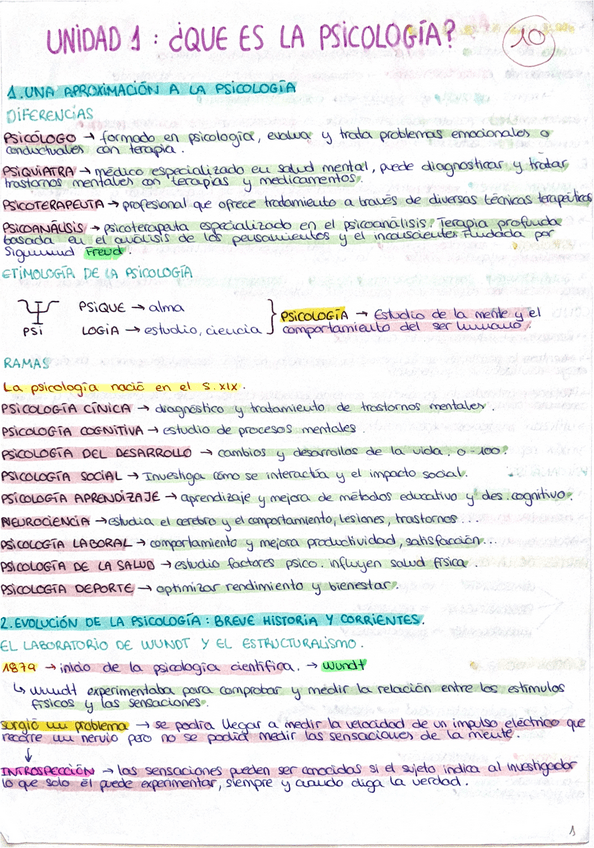 UNIDAD 1 : ¿QUE ES LA PSICOLOGÍA?
10
1. UNA APROXIMACIÓN A LA PSICOLOGÍA
DIFERENCIAS
PSICÓLOGO → formado en psicología, evalua y trata problemas emocionales o
conductuales con terapia.
PSIQUIATRA → médico especializado en salud mental, puede diagnosticar y tratar
trastornos mentales con terapias y medicamentos.
PSICOTERAPEUTA → profesional que ofrece tratamiento a través de diversas técnicas terapéuticas
PSICOANÁLISIS → psicoterapeuta especializado en el psicoanálisis. Terapia profunda
basada en el análisis de los pensamientos y el inconsciente. Fundada por
Sigmund Freud.
ETIMOLOGÍA DE LA PSICOLOGÍA
PSIQUE → alma
PSICOLOGÍA → Estudio de la mente y el
PSI
LOGIA → estudio, ciencia
comportamiento del ser humano.
RAMAS
La psicología nació en el S. XIX.
PSICOLOGÍA CÍNICA → diagnóstico y tratamiento de trastornos mentales.
PSICOLOGÍA COGNITIVA → estudio de procesos mentales.
PSICOLOGÍA DEL DESARROLLO → cambios y desarrollos de la vida. 0-100.
PSICOLOGÍA SOCIAL → Investiga cómo se interactúa y el impacto social.
PSICOLOGÍA APRENDIZAJE → aprendizaje y mejora de métodos educativo y des. cognitivo.
NEUROCIENCIA → estudia el cerebro y el comportamiento, lesiones, trastornos...
PSICOLOGÍA LABORAL → comportamiento y mejora productividad, satisfacción...
PSICOLOGÍA DE LA SALUD → estudio factores psico. influyen salud física.
PSICOLOGÍA DEPORTE → optimizar rendimiento y bienestar.
2. EVOLUCIÓN DE LA PSICOLOGÍA : BREVE HISTORIA Y CORRIENTES.
EL LABORATORIO DE WUNDT Y EL ESTRUCTURALISMO.
1879 → inicio de la psicología científica. → Wundt
↳ Wundt experimentaba para comprobar y medir la relación entre los estímulos
físicos y las sensaciones.
Surgió un problema → se podía llegar a medir la velocidad de un impulso eléctrico que
recorre un nervio pero no se podía medir las sensaciones de la mente.
↓
INTROSPECCIÓN → las sensaciones pueden ser conocidas si el sujeto indica al investigador
lo que solo él puede experimentar, siempre y cuando diga la verdad.
1